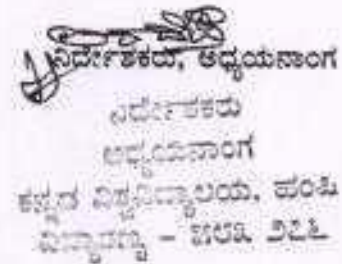 ನಿರ್ದೇಶಕರು, ಅಧ್ಯಯನಾಂಗ
ನಿರ್ದೇಶಕರು
ಅಧ್ಯಯನಾಂಗ
ಕನ್ನಡ ವಿಶ್ವವಿದ್ಯಾಲಯ, ಹಂಪಿ
ವಿದ್ಯಾರಣ್ಯ - ೫೮೩ ೨೭೬